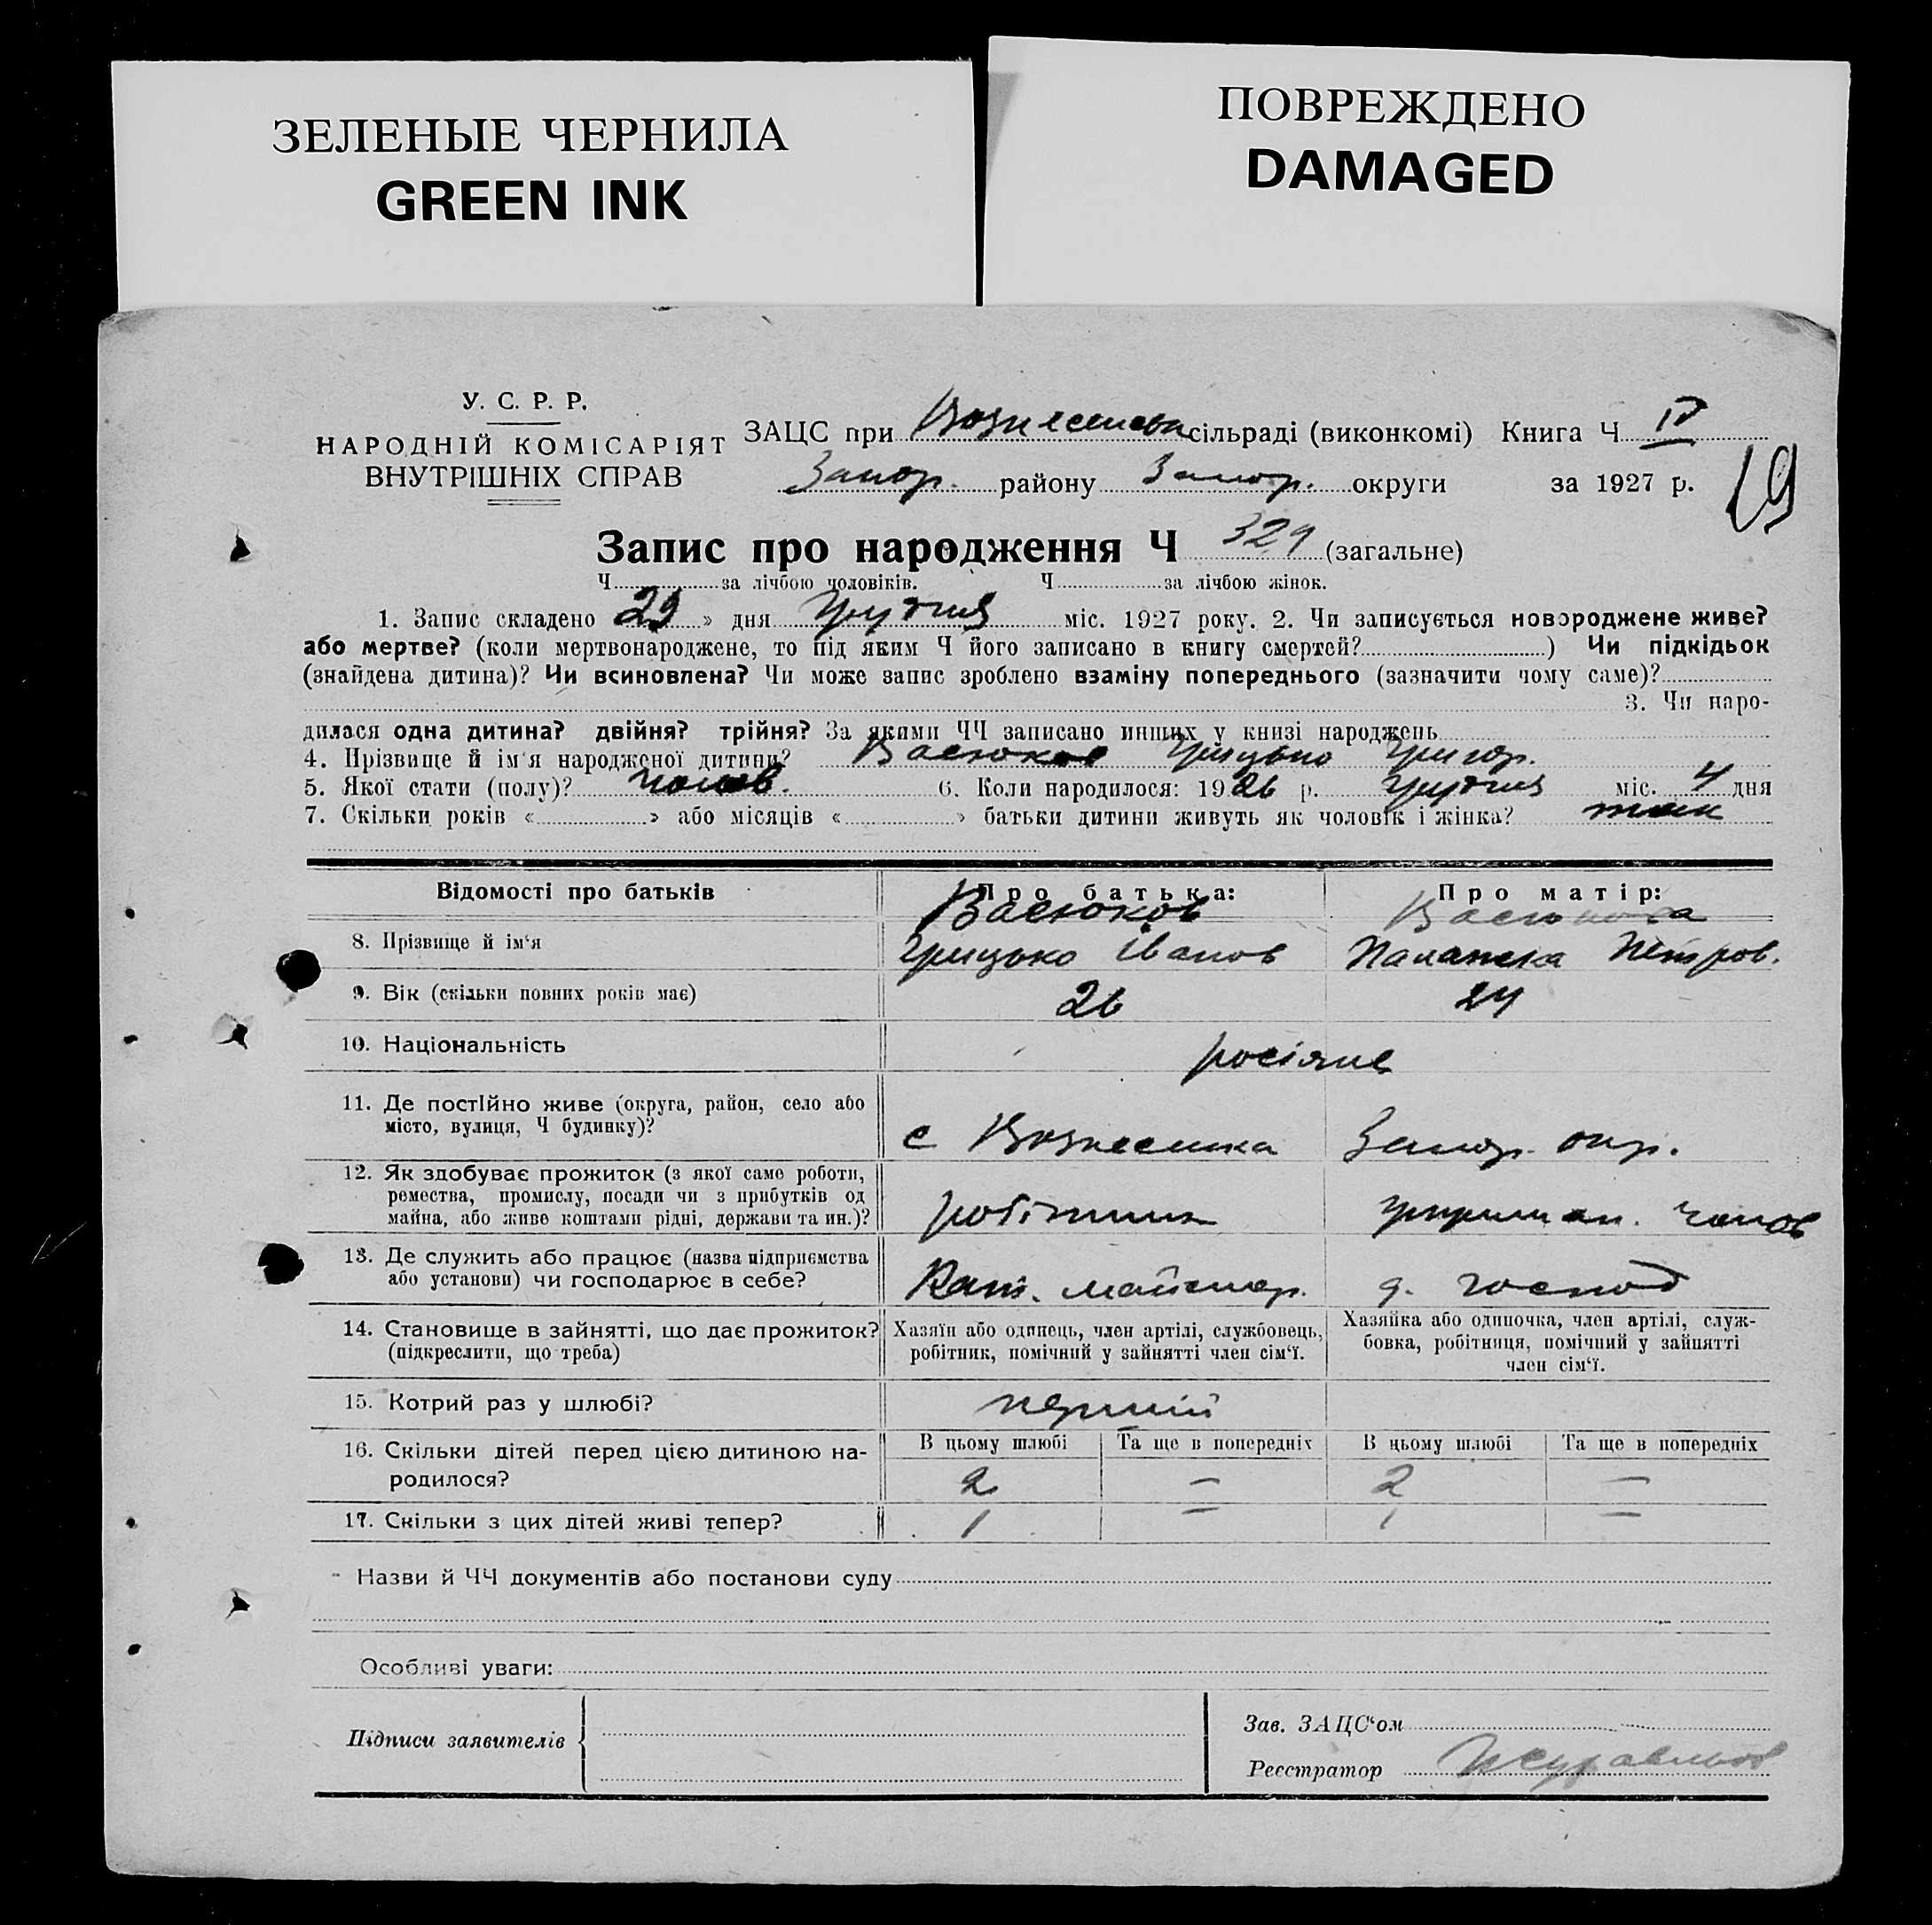 ЗЕЛЕНЫЕ ЧЕРНИЛА
GREEN INK
ПОВРЕЖДЕНО
DAMAGED
У. С. Р. Р.
НАРОДНІЙ КОМІСАРІЯТ
ВНУТРІШНІХ СПРАВ
ЗАЦС при Вознесенськ сільраді (виконкомі) Книга Ч IV
Запор. району Запор. округи за 1927 р.
19
Запис про народження Ч 329 (загальне)
Ч за лічбою чоловіків. Ч за лічбою жінок.
1. Запис складено 29 » дня Грудня міс. 1927 року. 2. Чи записується новороджене живе?
або мертве? (коли мертвонароджене, то під яким Ч його записано в книгу смертей? ) Чи підкідьок
(знайдена дитина)? Чи всиновлена? Чи може запис зроблено взаміну попереднього (зазначити чому саме)?
3. Чи наро-
дилася одна дитина? двійня? трійня? За якими ЧЧ записано инших у книзі народжень
4. Прізвище й ім'я народженої дитини? Васюков Грицько Григор.
5. Якої стати (полу)? чолов. 6. Коли народилося: 1926 р. Грудня міс. 4 дня
7. Скільки років « » або місяців « » батьки дитини живуть як чоловік і жінка?
Відомості про батьків Про батька: Про матір:
Васюков Васюкова
8. Прізвище й ім'я Грицько Іванов Палажка Петров.
9. Вік (скільки повних років має) 26 24
10. Національність росіяне
11. Де постійно живе (округа, район, село або
місто, вулиця, Ч будинку)? с Вознесенка Запор. окр.
12. Як здобуває прожиток (з якої саме роботи,
ремества, промислу, посади чи з прибутків од
майна, або живе коштами рідні, держави та ин.)? робітник утриман. чолов
13. Де служить або працює (назва підприємства
або установи) чи господарює в себе? майстер. д. господ
14. Становище в зайнятті, що дає прожиток?
(підкреслити, що треба)
Хазяїн або одинець, член артілі, службовець,
робітник, помічний у зайнятті член сім'ї.
Хазяйка або одиночка, член артілі, служ-
бовка, робітниця, помічний у зайнятті
член сім'ї.
15. Котрий раз у шлюбі? перший
16. Скільки дітей перед цією дитиною на-
родилося?
В цьому шлюбі Та ще в попередніх В цьому шлюбі Та ще в попередніх
2 — 2 —
17. Скільки з цих дітей живі тепер? 1 — 1 —
Назви й ЧЧ документів або постанови суду
Особливі уваги:
Підписи заявителів
Зав. ЗАЦС'ом
Реєстратор